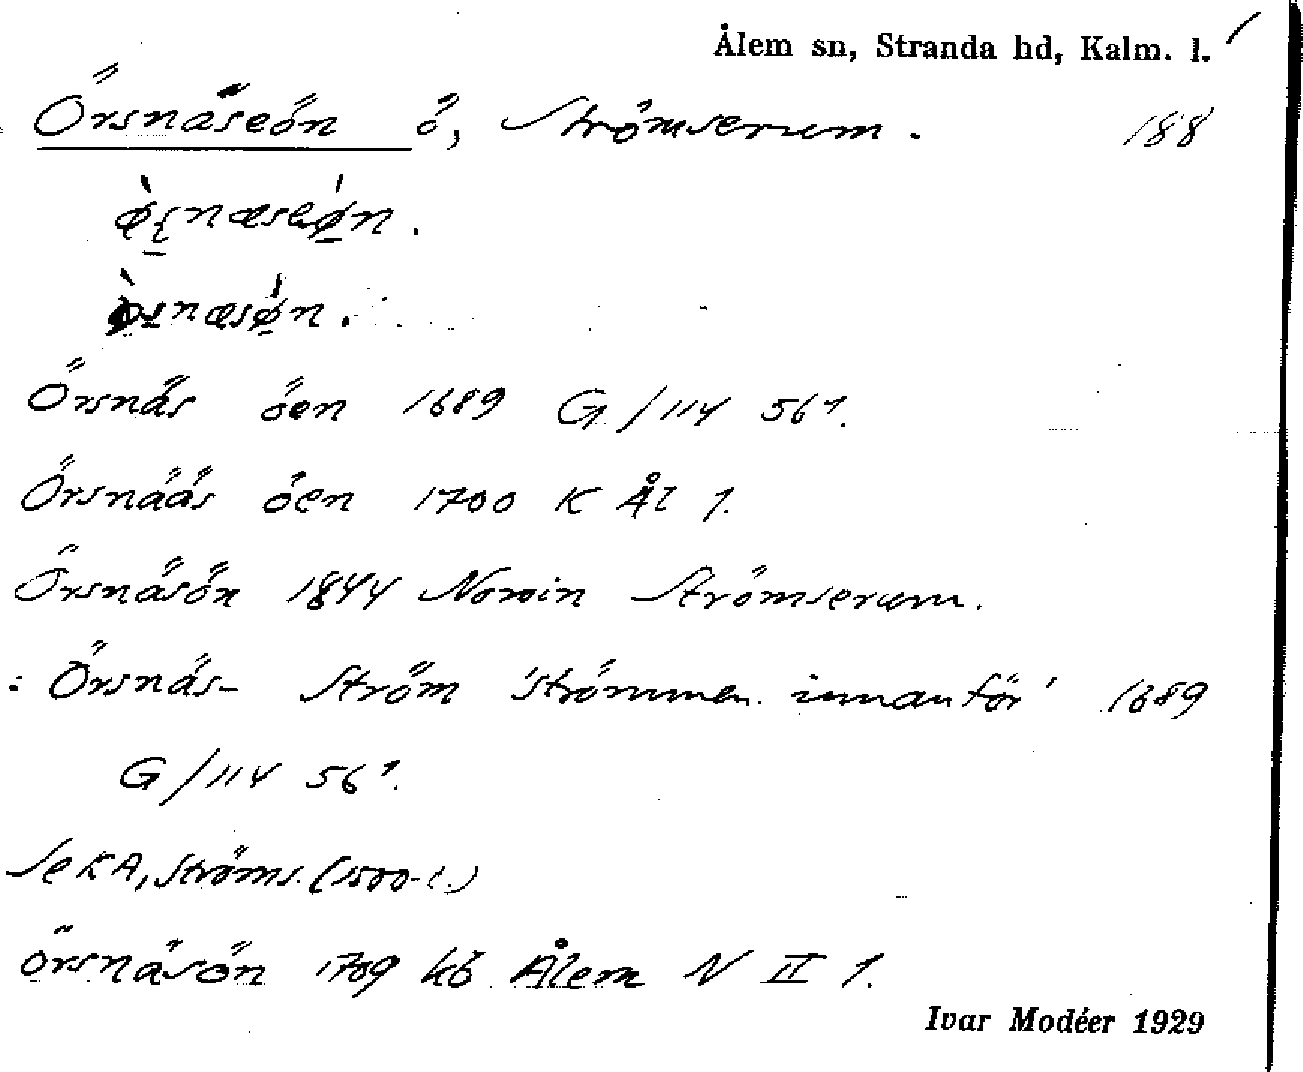 Ålem sn, Stranda hd, Kalm. l.
Örsnäseön ö, Strömserum. 188
Örsnäs öen 1689 G/114 56¹.
Örsnääs öen 1700 K Ål 1.
Örsnäsön 1844 Norvin Strömserum.
: Örsnäs- Ström 'strömmen innanför' 1689
G/114 56¹.
Se KA, Ströms. (1500-t.)
örsnäsön 1709 kb Ålem N II 1.
Ivar Modéer 1929